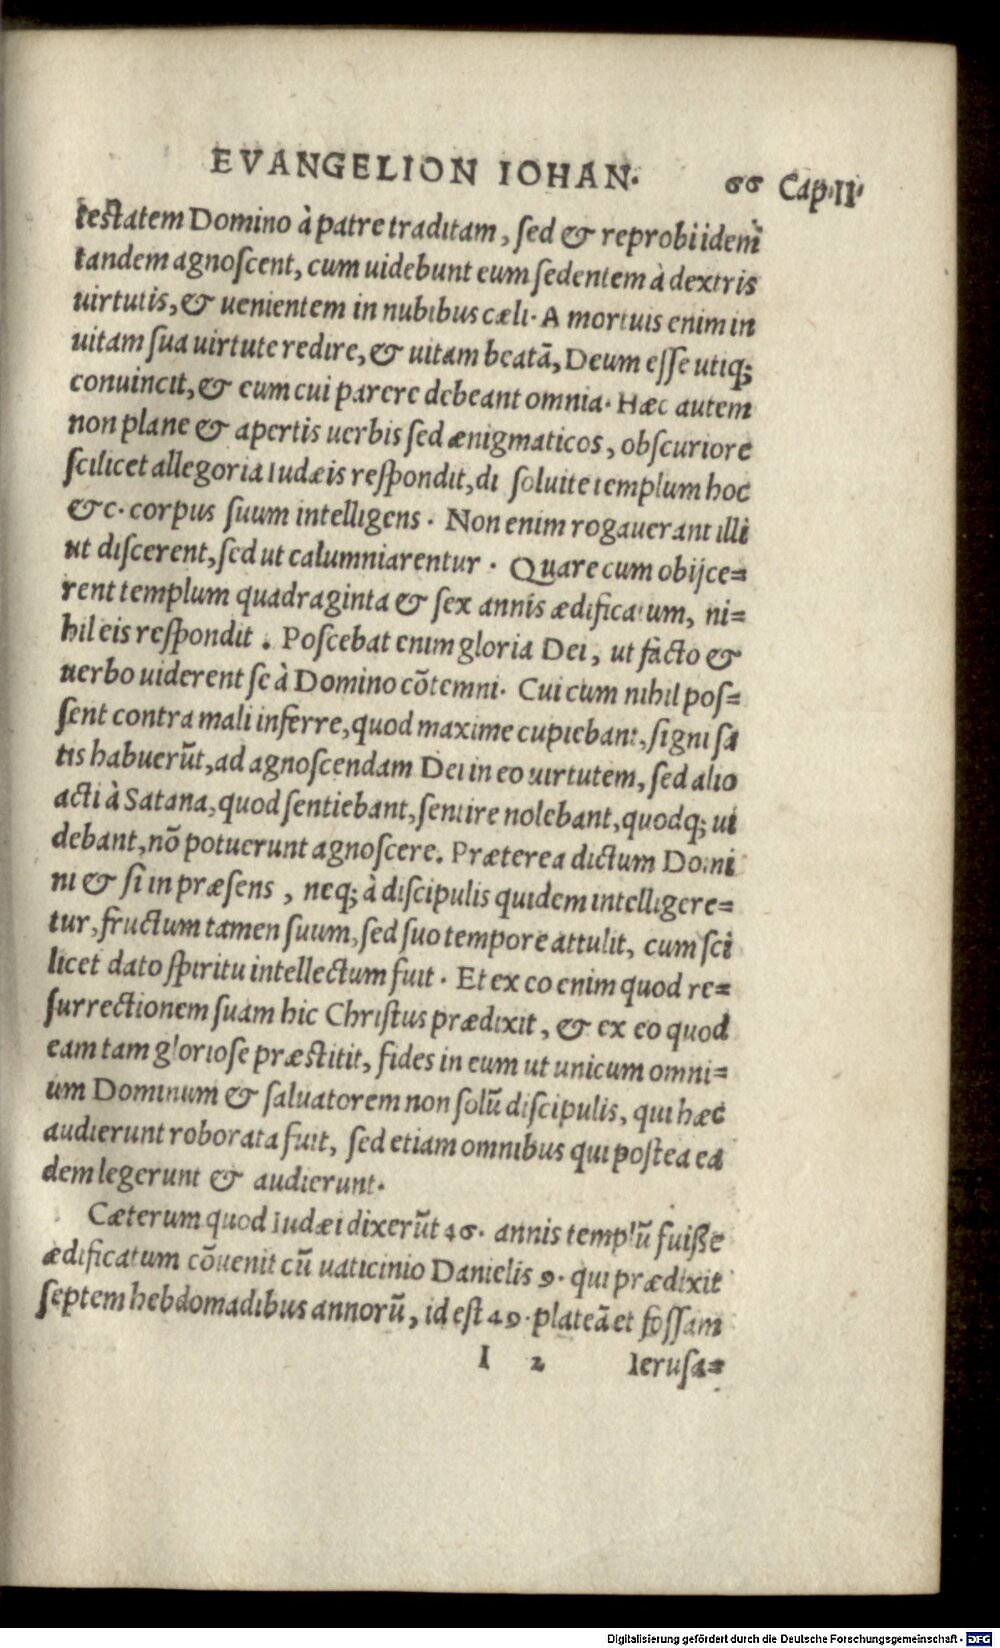 EVANGELION IOHAN. 66 Cap.II.
testatem Domino à patre traditam, sed & reprobi idem
tandem agnoscent, cum uidebunt eum sedentem à dextris
uirtutis, & uenientem in nubibus cæli. A mortuis enim in
uitam sua uirtute redire, & uitam beatã, Deum esse utiq;
conuincit, & eum cui parere debeant omnia. Hæc autem
non plane & apertis uerbis sed ænigmaticos, obscuriore
scilicet allegoria Iudæis respondit, di soluite templum hoc
&c. corpus suum intelligens. Non enim rogauerant illi
ut discerent, sed ut calumniarentur. Quare cum obijce=
rent templum quadraginta & sex annis ædificatum, ni=
hil eis respondit. Poscebat enim gloria Dei, ut facto &
uerbo uiderent se à Domino cõtemni. Cui cum nihil pos=
sent contra mali inferre, quod maxime cupiebant, signi sa
tis habuerũt, ad agnoscendam Dei in eo uirtutem, sed alio
acti à Satana, quod sentiebant, sentire nolebant, quodq; ui
debant, nõ potuerunt agnoscere. Præterea dictum Domi
ni & si in præsens, neq; à discipulis quidem intelligere=
tur, fructum tamen suum, sed suo tempore attulit, cum sci
licet dato spiritu intellectum fuit. Et ex eo enim quod re=
surrectionem suam hic Christus prædixit, & ex eo quod
eam tam gloriose præstitit, fides in eum ut unicum omni=
um Dominum & saluatorem non solũ discipulis, qui hæc
audierunt roborata fuit, sed etiam omnibus qui postea ea
dem legerunt & audierunt.
Cæterum quod Iudæi dixerũt 46. annis templũ fuisse
ædificatum cõuenit cũ uaticinio Danielis 9. qui prædixit
septem hebdomadibus annorũ, id est 49. plateã et fossam
I 2 Ierusa=
Digitalisierung gefördert durch die Deutsche Forschungsgemeinschaft - DFG